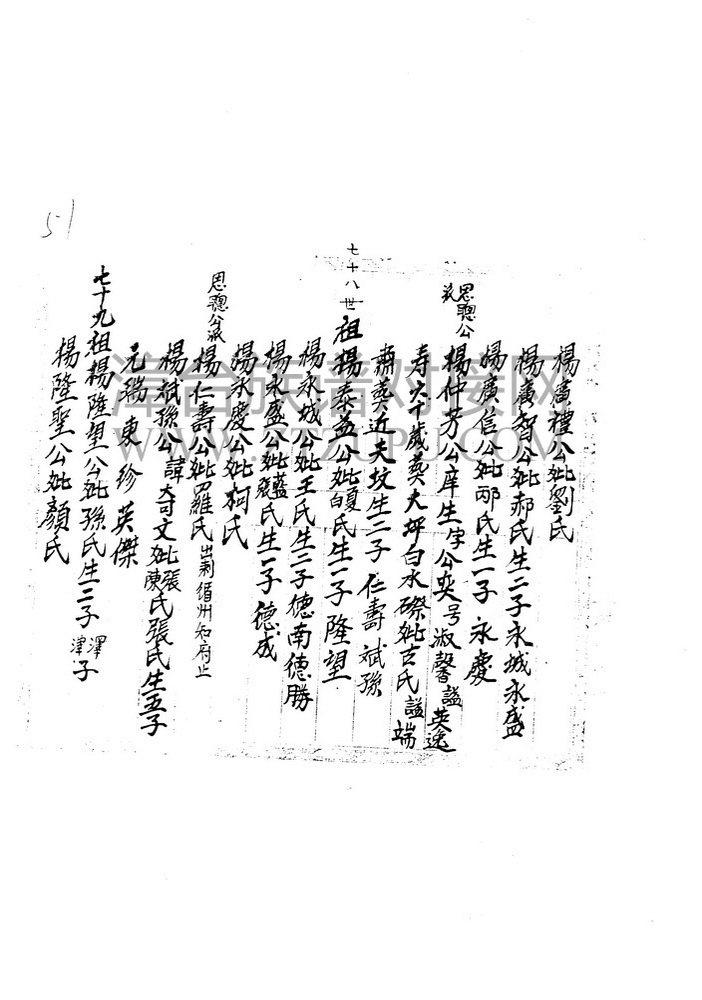 51
楊廣禮公妣劉氏
楊廣智公妣郝氏生二子永城永盛
楊廣信公妣邴氏生一子永慶
思聰公派
楊仲芳公庠生字公奕号淑馨謚英逸
寿六十歲葬大坪白水磜妣古氏謚端
肅葬近夫坟生二子仁壽斌孫
七十八世祖楊泰益公妣夏氏生一子隆望
楊永城公妣王氏生二子德南德勝
楊永盛公妣藍張氏生一子德成
楊永慶公妣柯氏
思聰公派
楊仁壽公妣羅氏出刺循州知府止
楊斌孫公諱奇文妣張陳氏張氏生五子
元瑞東珍英傑
七十九祖楊隆望公妣孫氏生二子澤津子
楊隆聖公妣顏氏